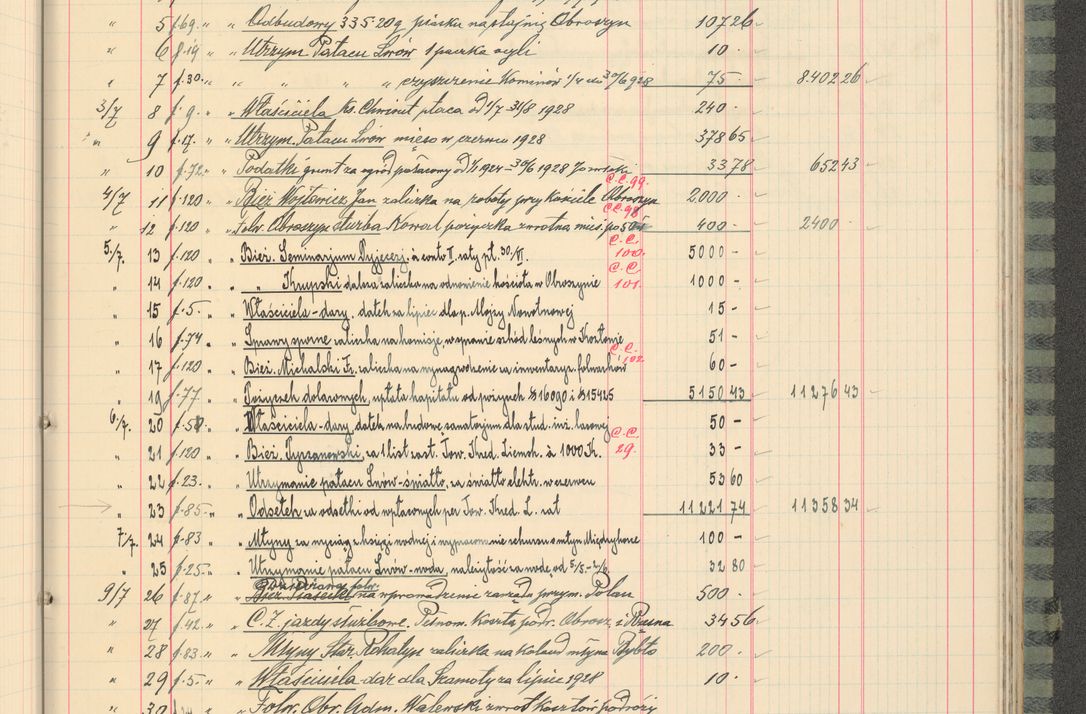 " 5 f.69. " " Odbudowy 335.20 q piasku na stajnię Obroszyn 107 26
" 6 f.19 " " Utrzym. Pałacu Lwów 1 paczka 10 -
" 7 f.30. " " " " " czyszczenie Kominów 1/4 do 30/6 928 75 - 8402 26
3/7 8 f.9. " " Właściciela Ks. płaca od 1/7 31/8 1928 240 -
" 9 f.17. " " Utrzym. Pałacu Lwów mięso w czerwcu 1928 378 65
" 10 f.72. " " Podatki grunt za ogród od 1/1 1924 - 30/6 1928 33 78 652 43
C.C. 99.
4/7 11 f.120 " Bież. Wojtowicz Jan zaliczka na roboty przy Kościele Obroszyn 2000 -
C.C. 98
" 12 f.120 " Folw. Obroszyn służba Kowal pożyczka zwrotna mies. po 50 400 - 2400 -
C.C. 100.
5./7. 13 f.120 " Bież. Seminarjum Dyjecezj. à conto II. raty pł. 30./VI. 5000 -
C.C. 101.
" 14 f.120 " " Krupski dalsza zaliczka na odnowienie kościoła w Obroszynie 1000 -
" 15 f.5. " " Właściciela - dary, datek za lipiec dla p. Mojzy Nowotnowej 15 -
" 16 f.74 " " Sprawy sporne zaliczka na komisję w sprawie szkód leśnych w 51 -
C.C. 102.
" 17 f.120 " Bież. Michalski Fr. zaliczka na wynagrodzenie za inwentaryz. folwarków 60 -
" 19 f.77. " Pożyczek dolarowych, spłata kapitału od pożycz. $16090 i $15425 5150 43 11276 43
6./7. 20 f.5 " Właściciela - dary, datek na budowę sanatorjum dla stud. inż. lasowej 50 -
C.C. 29.
" 21 f.120 " Bież. Tyszanowski, za 1 list zast. Tow. Kred. Ziemsk. à 1000 K. 33 -
" 22 f.23. " Utrzymanie pałacu Lwów - światło, za światło elektr. w czerwcu 53 60
" 23 f.85. " Odsetek za odsetki od wpłaconych per Tow. Kred. L. rat 11221 74 11358 34
7./7. 24 f.83 " Młyny za wyciąg z księgi wodnej i wypracowanie rekursu o młyn Międzyhorce 100 -
" 25 f.25. " Utrzymanie pałacu Lwów - woda, należytość za wodę od 5/3. - 4/6. 32 80
Dzierżawa folw.
9/7 26 f.87. " " Bież. Piasecki na wprowadzenie zarządu przym. Polan 500 -
" 27 f.42. " " C. Z. jazdy służbowe. Pełnom. Koszta podr. Obrosz. i Rzesna 34 56
" 28 f.83. " " Młyny Star. Rohatyn zaliczka na młyna Bybło 200 -
" 29 f.5. " " Właściciela - dar dla Skamoty za lipiec 1928 10 -
" 30 " Folw. Obr. Adm. Walewski zwrot kosztów podróży